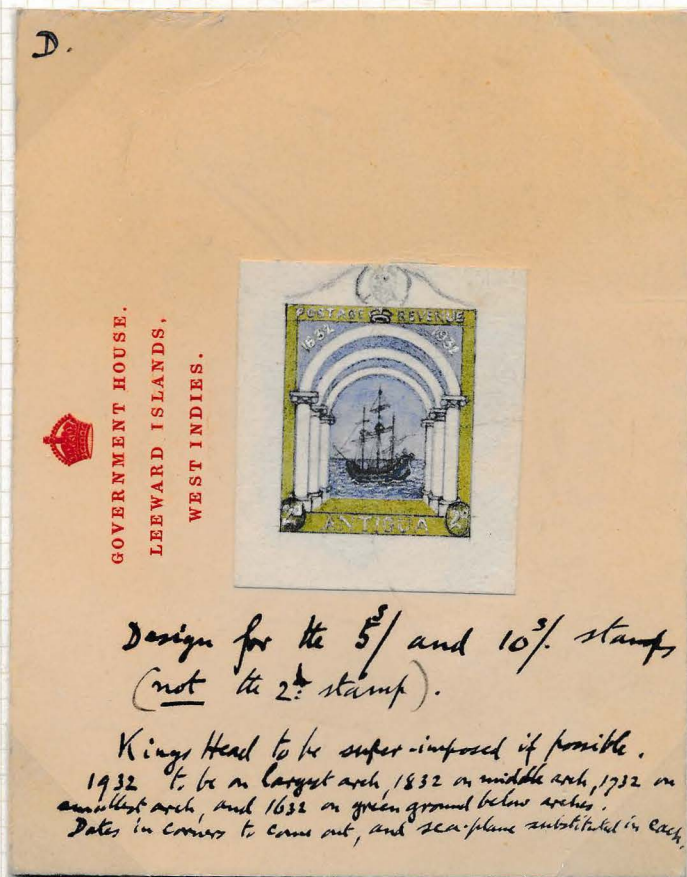 D.
GOVERNMENT HOUSE.
LEEWARD ISLANDS,
WEST INDIES.
POSTAGE & REVENUE
1632 1932
2d ANTIGUA 2d
Design for the 5s/ and 10s/. stamps
(not the 2d stamp).
Kings Head to be super-imposed if possible.
1932 to be on largest arch, 1832 on middle arch, 1732 on
smallest arch, and 1632 on green ground below arches.
Dates in corners to come out, and sea-plane substituted in each.